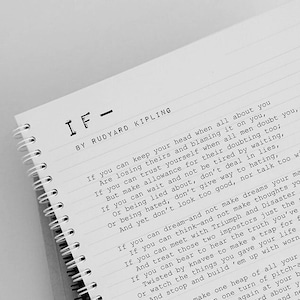 IF—
BY RUDYARD KIPLING
If you can keep your head when all about you
Are losing theirs and blaming it on you,
If you can trust yourself when all men doubt you,
But make allowance for their doubting too;
If you can wait and not be tired by waiting,
Or being lied about, don't deal in lies,
Or being hated, don't give way to hating,
And yet don't look too good, nor talk too wi
If you can dream—and not make dreams your ma
If you can think—and not make thoughts your
If you can meet with Triumph and Disaster
And treat those two impostors just the
If you can bear to hear the truth you've
Twisted by knaves to make a trap for
Or watch the things you gave your life
And stoop and build em up with wor
one heap of all your
on one turn of pitch-a
again at your